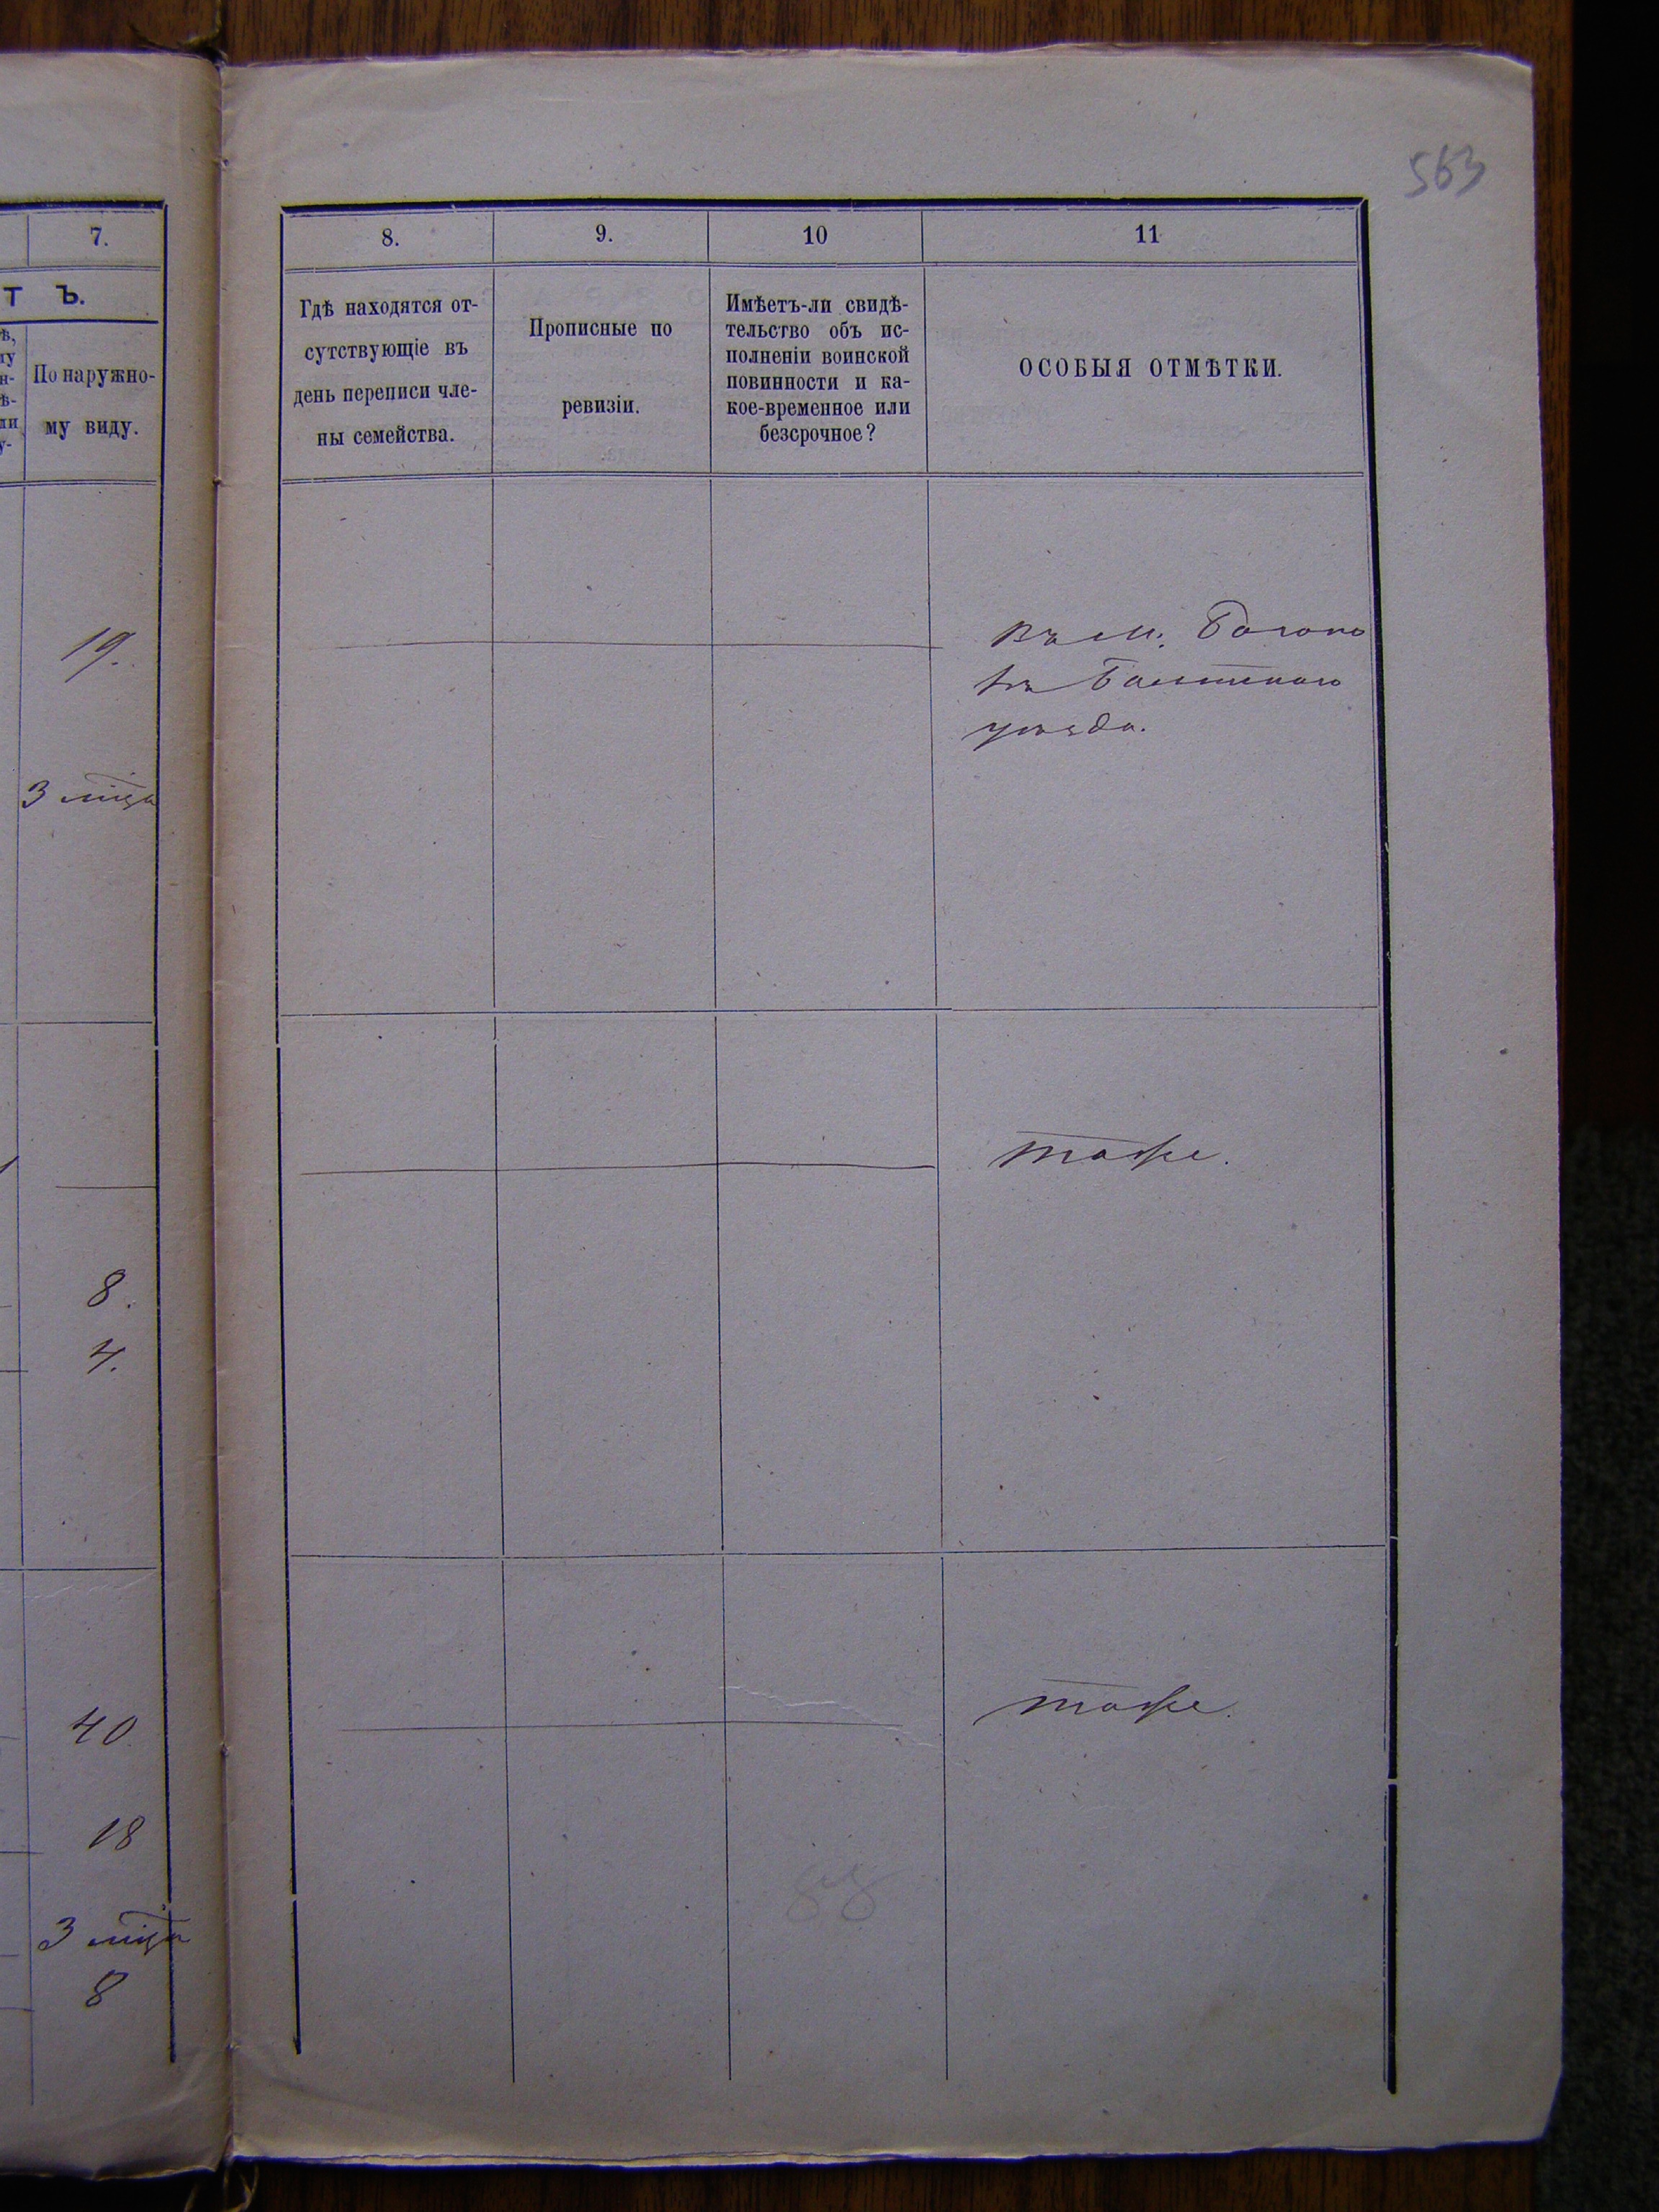 563
7.
8.
9.
10
11
Т Ъ.
По наружно-
му виду.
Гдѣ находятся от-
сутствующіе въ
день переписи чле-
ны семейства.
Прописные по
ревизіи.
Имѣетъ-ли свидѣ-
тельство объ ис-
полненіи воинской
повинности и ка-
кое-временное или
безсрочное?
ОСОБЫЯ ОТМѢТКИ.
19.
3 мѣца
8.
4.
40
18
3 мѣца
8
въ м.
Балтскаго
уѣзда.
тоже.
тоже.